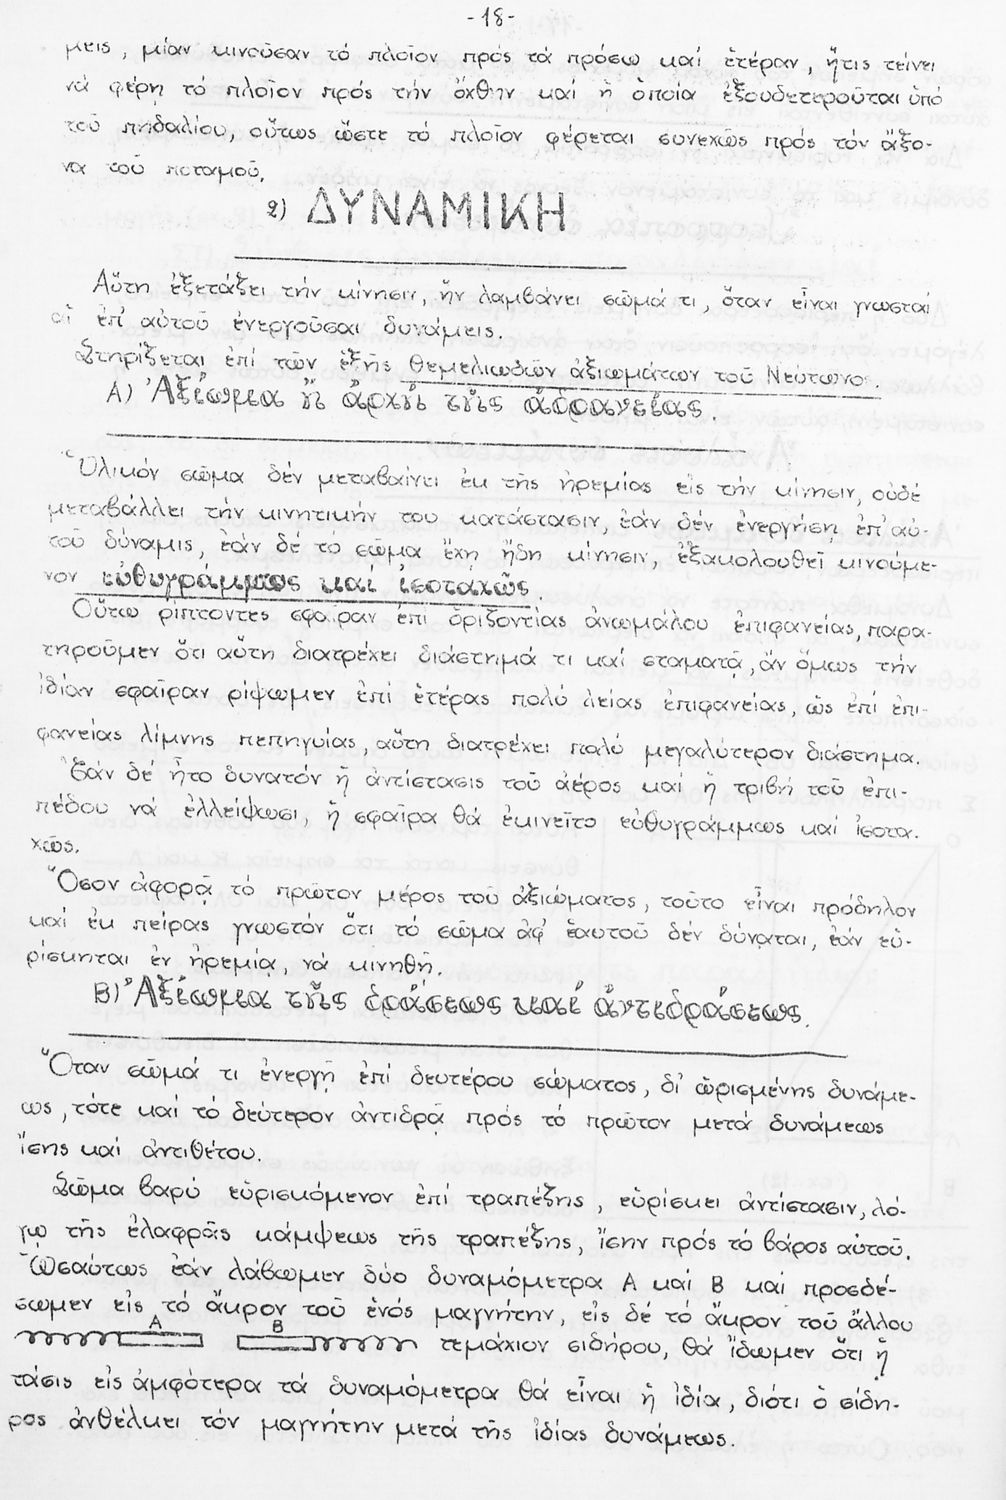 -18-
μεις, μίαν κινοῦσαν τό πλοῖον πρός τά πρόσω καί ἑτέραν, ἥτις τείνει
νά φέρῃ τό πλοῖον πρός τήν ὄχθην καί ἡ ὁποία ἐξουδετεροῦται ὑπό
τοῦ πηδαλίου, οὕτως ὥστε τό πλοῖον φέρεται συνεχῶς πρός τόν ἄξο-
να τοῦ ποταμοῦ.
2) ΔΥΝΑΜΙΚΗ
Αὕτη ἐξετάζει τήν κίνησιν, ἥν λαμβάνει σῶμά τι, ὅταν εἶναι γνωσταί
αἱ ἐπ' αὐτοῦ ἐνεργοῦσαι δυνάμεις.
Στηρίζεται ἐπί τῶν ἑξῆς θεμελιωδῶν ἀξιωμάτων τοῦ Νεύτωνος.
Α) Ἀξίωμα ἤ ἀρχή τῆς ἀδρανείας.
Ὑλικόν σῶμα δέν μεταβαίνει ἐκ τῆς ἠρεμίας εἰς τήν κίνησιν, οὐδέ
μεταβάλλει τήν κινητικήν του κατάστασιν, ἐάν δέν ἐνεργήσῃ ἐπ' αὐ-
τοῦ δύναμις, ἐάν δέ τό σῶμα ἔχῃ ἤδη κίνησιν, ἐξακολουθεῖ κινούμε-
νον εὐθυγράμμως καί ἰσοταχῶς
Οὕτω ρίπτοντες σφαῖραν ἐπί ὁριζοντίας ἀνωμάλου ἐπιφανείας, παρα-
τηροῦμεν ὅτι αὕτη διατρέχει διάστημά τι καί σταματᾷ, ἄν ὅμως τήν
ἰδίαν σφαῖραν ρίψωμεν ἐπί ἑτέρας πολύ λείας ἐπιφανείας, ὡς ἐπί ἐπι-
φανείας λίμνης πεπηγυίας, αὕτη διατρέχει πολύ μεγαλύτερον διάστημα.
Ἐάν δέ ἦτο δυνατόν ἡ ἀντίστασις τοῦ ἀέρος καί ἡ τριβή τοῦ ἐπι-
πέδου νά ἐλλείψωσι, ἡ σφαῖρα θά ἐκινεῖτο εὐθυγράμμως καί ἰσοτα.
χῶς.
Ὅσον ἀφορᾷ τό πρῶτον μέρος τοῦ ἀξιώματος, τοῦτο εἶναι πρόδηλον
καί ἐκ πείρας γνωστόν ὅτι τό σῶμα ἀφ' ἑαυτοῦ δέν δύναται, ἐάν εὑ-
ρίσκηται ἐν ἠρεμίᾳ, νά κινηθῇ.
Β) Ἀξίωμα τῆς δράσεως καί ἀντιδράσεως.
Ὅταν σῶμά τι ἐνεργῇ ἐπί δευτέρου σώματος, δι' ὡρισμένης δυνάμε-
ως, τότε καί τό δεύτερον ἀντιδρᾷ πρός τό πρῶτον μετά δυνάμεως
ἴσης καί ἀντιθέτου.
Σῶμα βαρύ εὑρισκόμενον ἐπί τραπέζης, εὑρίσκει ἀντίστασιν, λό-
γῳ τῆς ἐλαφρᾶς κάμψεως τῆς τραπέζης, ἴσην πρός τό βάρος αὐτοῦ.
Ὡσαύτως ἐάν λάβωμεν δύο δυναμόμετρα Α καί Β καί προσδέ-
σωμεν εἰς τό ἄκρον τοῦ ἑνός μαγνήτην, εἰς δέ τό ἄκρον τοῦ ἄλλου
Α Β τεμάχιον σιδήρου, θά ἴδωμεν ὅτι ἡ
τάσις εἰς ἀμφότερα τά δυναμόμετρα θά εἶναι ἡ ἰδία, διότι ὁ σίδη-
ρος ἀνθέλκει τόν μαγνήτην μετά τῆς ἰδίας δυνάμεως.